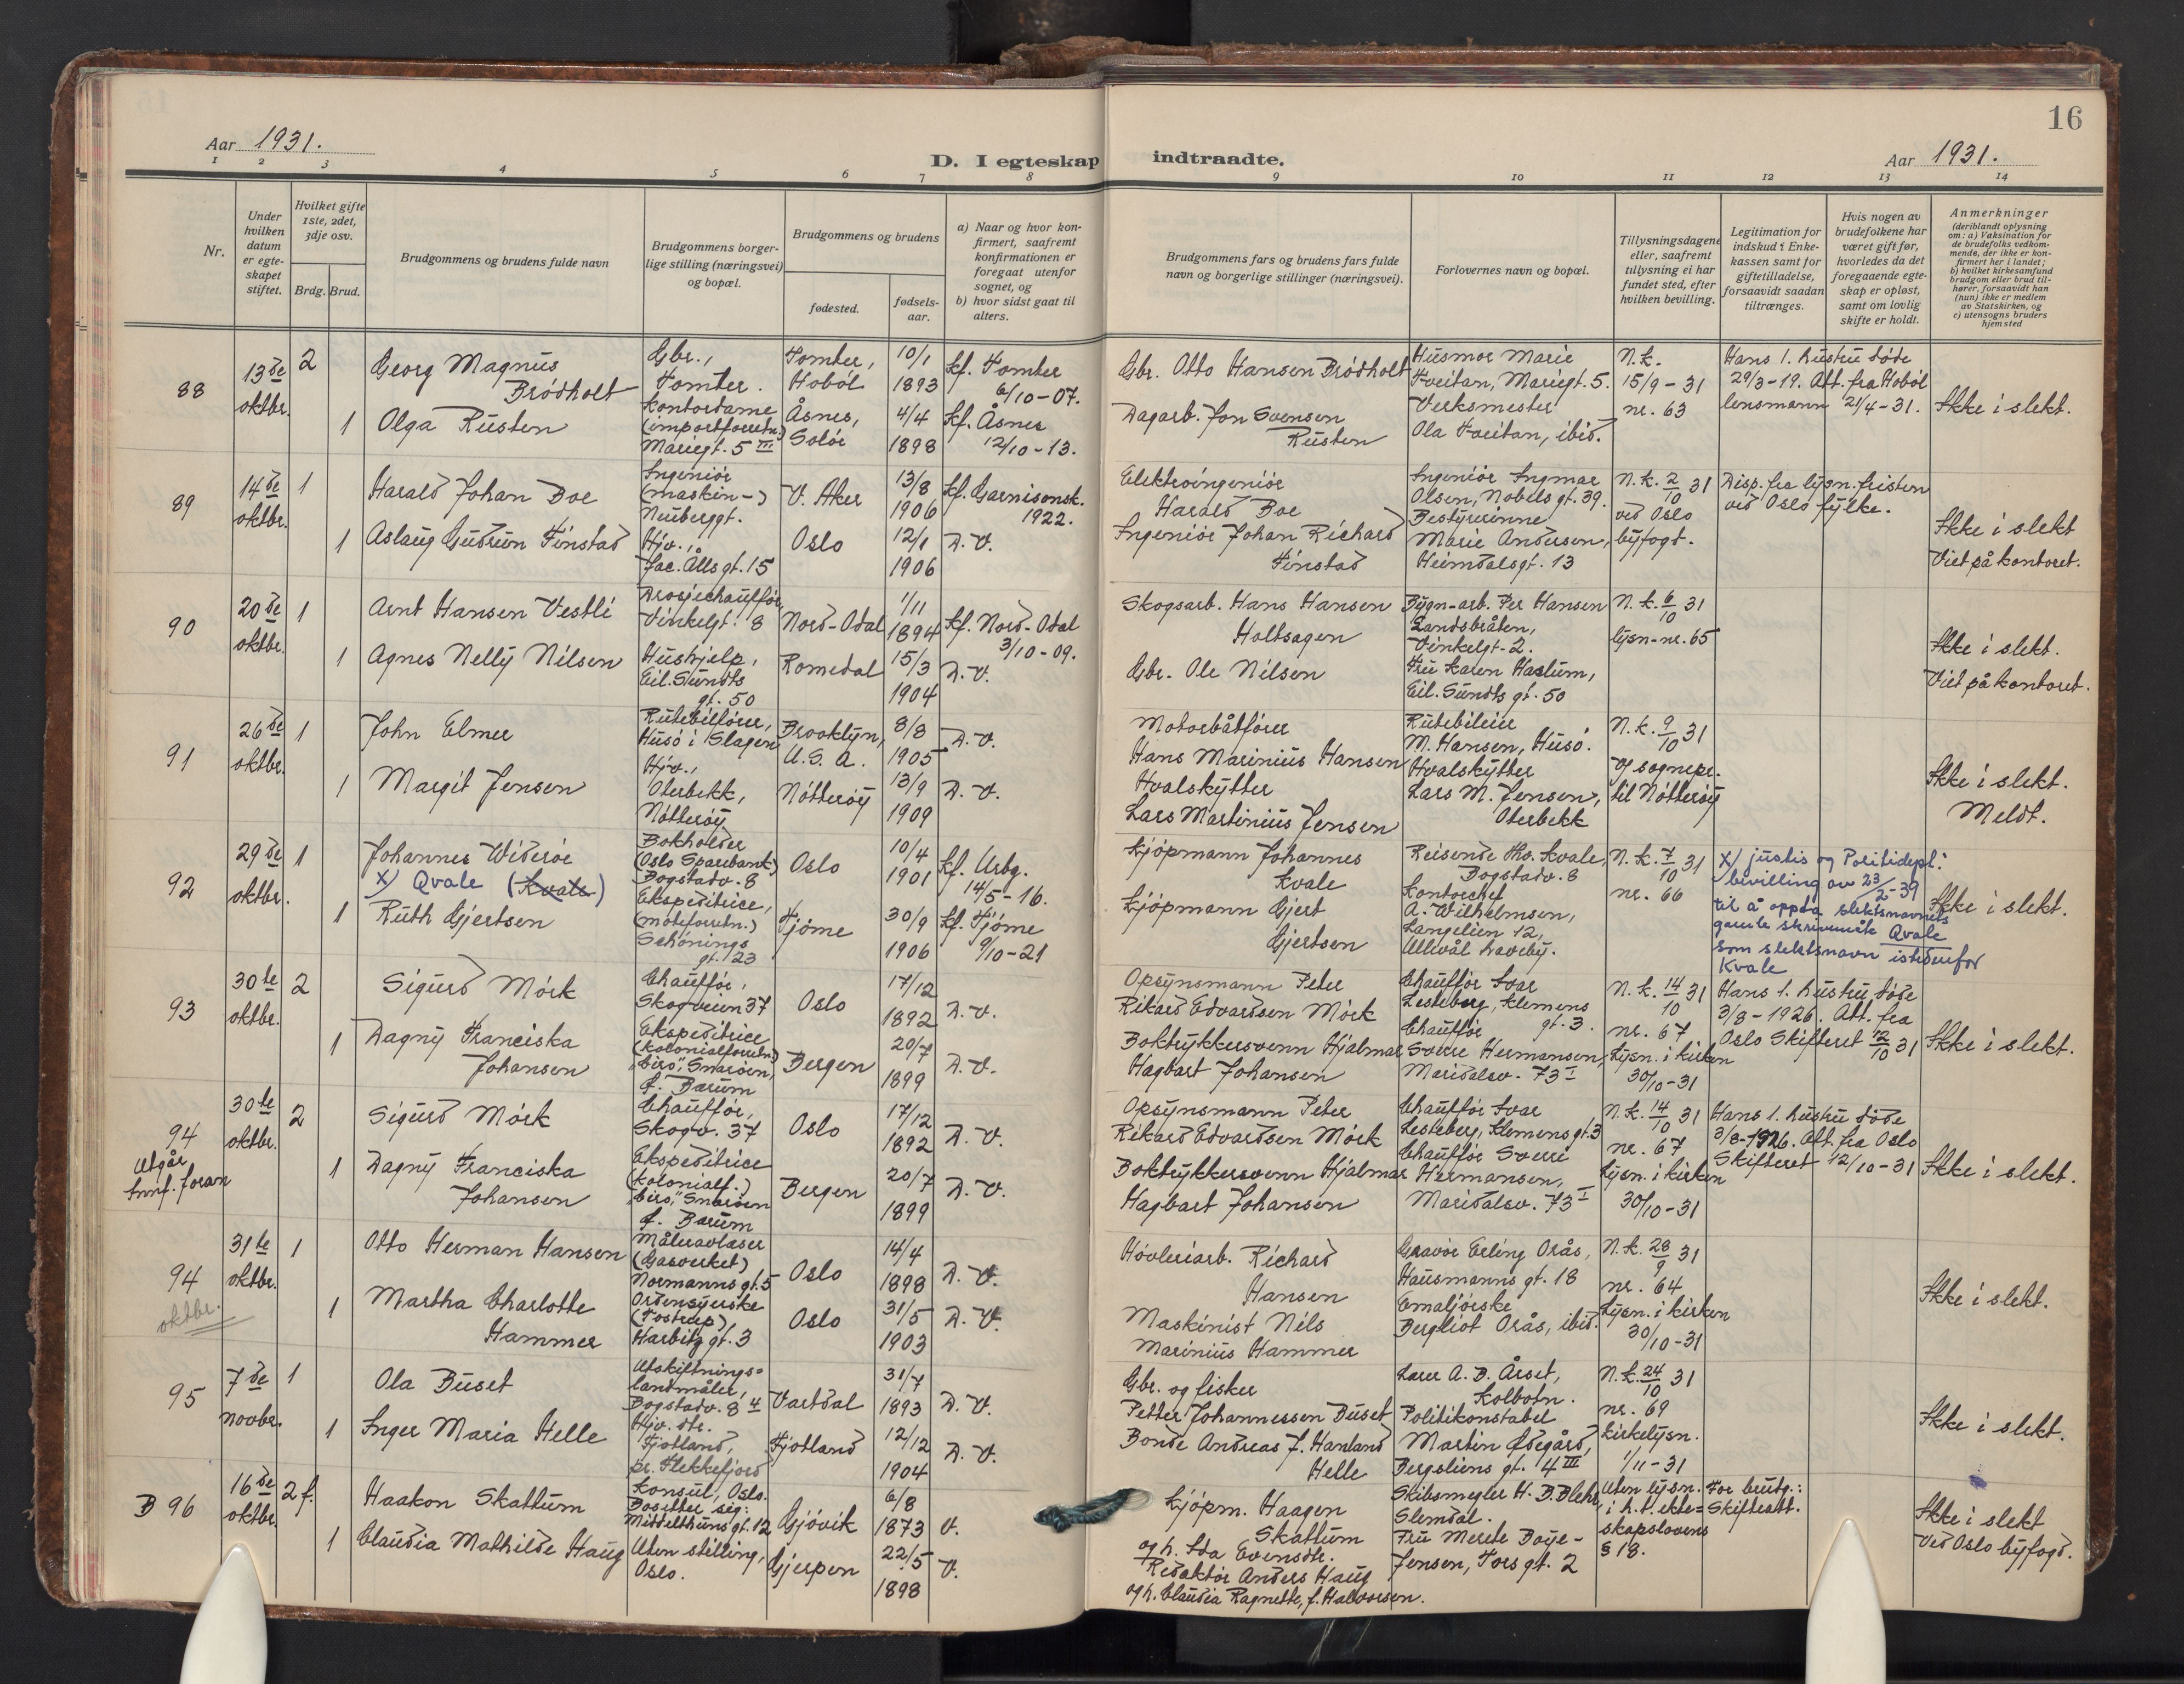 16
Aar 1931.
D. I egteskap indtraadte.
Aar 1931.
1 2 3 4 5 6 7 8 9 10 11 12 13 14
Nr.
Under hvilken datum er egte-skapet stiftet.
Hvilket gifte 1ste, 2det, 3dje osv.
Brdg. Brud.
Brudgommens og brudens fulde navn
Brudgommens borger-lige stilling (næringsvei) og bopæl.
Brudgommens og brudens
fødested.
fødsels-aar.
a) Naar og hvor kon-firmert, saafremt konfirmationen er foregaat utenfor sognet, og
b) hvor sidst gaat til alters.
Brudgommens fars og brudens fars fulde navn og borgerlige stillinger (næringsvei).
Forlovernes navn og bopæl.
Tillysningsdagene eller, saafremt tillysning ei har fundet sted, efter hvilken bevilling.
Legitimation for indskud i Enke-kassen samt for giftetilladelse, forsaavidt saadan tiltrænges.
Hvis nogen av brudefolkene har været gift før, hvorledes da det foregaaende egte-skap er opløst, samt om lovlig skifte er holdt.
Anmerkninger
(deriblandt oplysning om: a) Vaksination for de brudefolks vedkom-mende, der ikke er kon-firmert her i landet;
b) hvilket kirkesamfund brudgom eller brud til-hører, forsaavidt han (hun) ikke er medlem av Statskirken, og
c) utensogns bruders hjemsted
88
13de oktbr.
2
Georg Magnus Brödholt
Gbr., Tomter.
Tomter, Hoböl
10/1 1893
kf. Tomter 6/10-07.
Gbr. Otto Hansen Brödholt
Husmor Marie Tveitan, Mariegt. 5.
N.k. 15/9-31 nr. 63
Hans 1. hustru döde 29/3-19. Att. fra Hoböl lensmann 21/4-31.
Ikke i slekt.
1
Olga Rusten
Kontordame (importforretn.) Mariegt. 5 III
Åsnes, Solör
4/4 1898
kf. Åsnes 12/10-13.
Dagarb. Jon Svensen Rusten
Verksmester Ola Tveitan, ibid.
89
14de oktbr.
1
Harald Johan Boe
Ingeniör (maskin-) Neuberggt.
V. Aker
13/8 1906
kf. Garnisonsk. 1922.
Elektroingeniör Harald Boe
Ingeniör Ingmar Olsen, Nobels gt. 39.
N.k. 2/10 31 ved Oslo byfogt.
Disp. fra lysn.fristen ved Oslo fylke.
Ikke i slekt
Viet på kontoret.
1
Aslaug Gudrun Finstad
Hjv., Jac. Ålls gt. 15
Oslo
12/1 1906
D.V.
Ingeniör Johan Richard Finstad
Bestyrerinne Marie Andersen, Heimdalsgt. 13
90
20de oktbr.
1
Arnt Hansen Vestli
Drosjechaufför, Vinkelgt. 8
Nord-Odal
1/11 1894
kf. Nord-Odal 3/10-09.
Skogsarb. Hans Hansen Holtsagen
Bygn-arb. Per Hansen Sandsbråten, Vinkelgt-2.
N.k. 6/10 31 lysn-nr. 65
Ikke i slekt.
Viet på kontoret.
1
Agnes Nelly Nilsen
Hushjelp, Eil. Sundts gt. 50
Romedal
15/3 1904
D.V.
Gbr. Ole Nilsen
Fru Karen Haslum, Eil. Sundts gt. 50
91
26de oktbr.
1
John Elmer
Rutebilförer, Husö i Slagen
Brooklyn, U.S.A.
8/8 1905
D.V.
Motorbåtförer Hans Marinius Hansen
Rutebileier M. Hansen, Husö.
N.k. 9/10 31 v/ sognepr. til Nötteröy
Ikke i slekt.
Meldt.
1
Margit Jensen
Hjv., Oterbekk, Nötteröy
Nötteröy
13/9 1909
D.V.
Hvalskytter Lars Martinius Jensen
Hvalskytter Lars M. Jensen, Oterbekk
92
29de oktbr.
1
Johannes Wideröe x) Qvale (Kvale)
Bokholder (Oslo Sparebank) Bogstadv. 8
Oslo
10/4 1901
kf. Urbg. 14/5-16.
Kjöpmann Johannes Kvale
Reisende Tho. Kvale, Bogstadv. 8
N.k. 7/10 31 nr. 66
x) justis og Politidept: bevilling av 23/2-39 til å oppta slektsnavnets gamle skrivemåte Qvale som slektsnavn istedenfor Kvale
Ikke i slekt.
1
Ruth Gjertsen
Ekspeditrice, (moteforretn.) Schönings gt. 23
Tjöme
30/9 1906
kf. Tjöme 9/10-21
Kjöpmann Gjert Gjertsen
Kontorchef A. Wilhelmsen, Langelien 12, Ullevål haveby.
93
30te oktbr.
2
Sigurd Mörk
Chaufför, Skogveien 37
Oslo
17/12 1892
D.V.
Opsynsmann Peter Rikard Edvardsen Mörk
Chaufför Ivar Lesteberg, Klemens gt. 3.
N.k. 14/10 31 nr. 67 Lysn. i kirken 30/10-31
Hans 1. hustru döde 3/8-1926. Att. fra Oslo Skifteret 12/10 31
Ikke i slekt.
1
Dagny Franciska Johansen
Ekspeditrice (kolonialforretn.) "Ciro", Snaröen, p. Bærum
Bergen
20/7 1899
D.V.
Boktrykkersvenn Hjalmar Hagbart Johansen
Chaufför Sverre Hermansen, Maridalsv. 73 I
94
Utgår
Innf. foran
30te oktbr.
2
Sigurd Mörk
Chaufför, Skogv. 37
Oslo
17/12 1892
D.V.
Opsynsmann Peter Rikard Edvardsen Mörk
Chaufför Ivar Lesteberg, Klemens gt. 3
N.k. 14/10 31 nr. 67 Lysn. i kirken 30/10-31
Hans 1. hustru döde 3/8-1926. Att. fra Oslo Skifteret 12/10-31
Ikke i slekt.
1
Dagny Franciska Johansen
Ekspeditrice (kolonialf.) "Ciro", Snaröen p. Bærum
Bergen
20/7 1899
D.V.
Boktrykkersvenn Hjalmar Hagbart Johansen
Chaufför Sverre Hermansen, Maridalsv. 73 I
94
oktbr.
31te oktbr.
1
Otto Herman Hansen
Måleravlæser (Gasverket) Normanns gt. 5
Oslo
14/4 1898
D.V.
Hövleriarb. Richard Hansen
Gravör Erling Orås, Hausmanns gt. 18
N.k. 28/9 31 nr. 64 Lysn. i kirken 30/10-31
Ikke i slekt.
1
Martha Charlotte Hammer
Ordensyerske (Tostrup) Harbitz gt. 3
Oslo
31/5 1903
D.V.
Maskinist Nils Marinius Hammer
Emaljörske Bergliot Orås, ibid.
95
7de novbr.
1
Ola Buset
Utskiftnings-landmåler, Bogstadv. 8 4
Vartdal
31/7 1893
D.V.
Gbr. og fisker Petter Johannessen Buset
Lærer A. D. Årset, Kolbotn.
N.k. 24/10 31 nr. 69 Kirkelysn. 1/11-31
Ikke i slekt.
1
Inger Maria Helle
Hjv. dtr. Fjotland, pr. Flekkefjord
Fjotland
12/12 1904
D.V.
Bonde Andreas J. Hanland Helle
Politikonstabel Martin Ödegård, Bergsliens gt. 4 III
B 96
16de oktbr.
2 f.
Haakon Skattum
Konsul, Oslo. Bosetter sig: Middelthuns gt. 12
Gjövik
6/8 1873
V.
Kjöpm. Haagen Skattum og h. Ida Evensdtr.
Skibsmegler H. B. Blehr, Slemdal.
Uten lysn. i h. t. ekte-skapslovens § 18.
For brudg.: Skifteatt.
Ikke i slekt
Ved Oslo byfogd.
1
Claudia Mathilde Haug
Uten stilling, Oslo.
Gjerpen
22/5 1898
V.
Redaktör Anders Haug og h. Claudia Ragnette, f. Halvorsen.
Fru Merete Boye-Jensen, Tors gt. 2